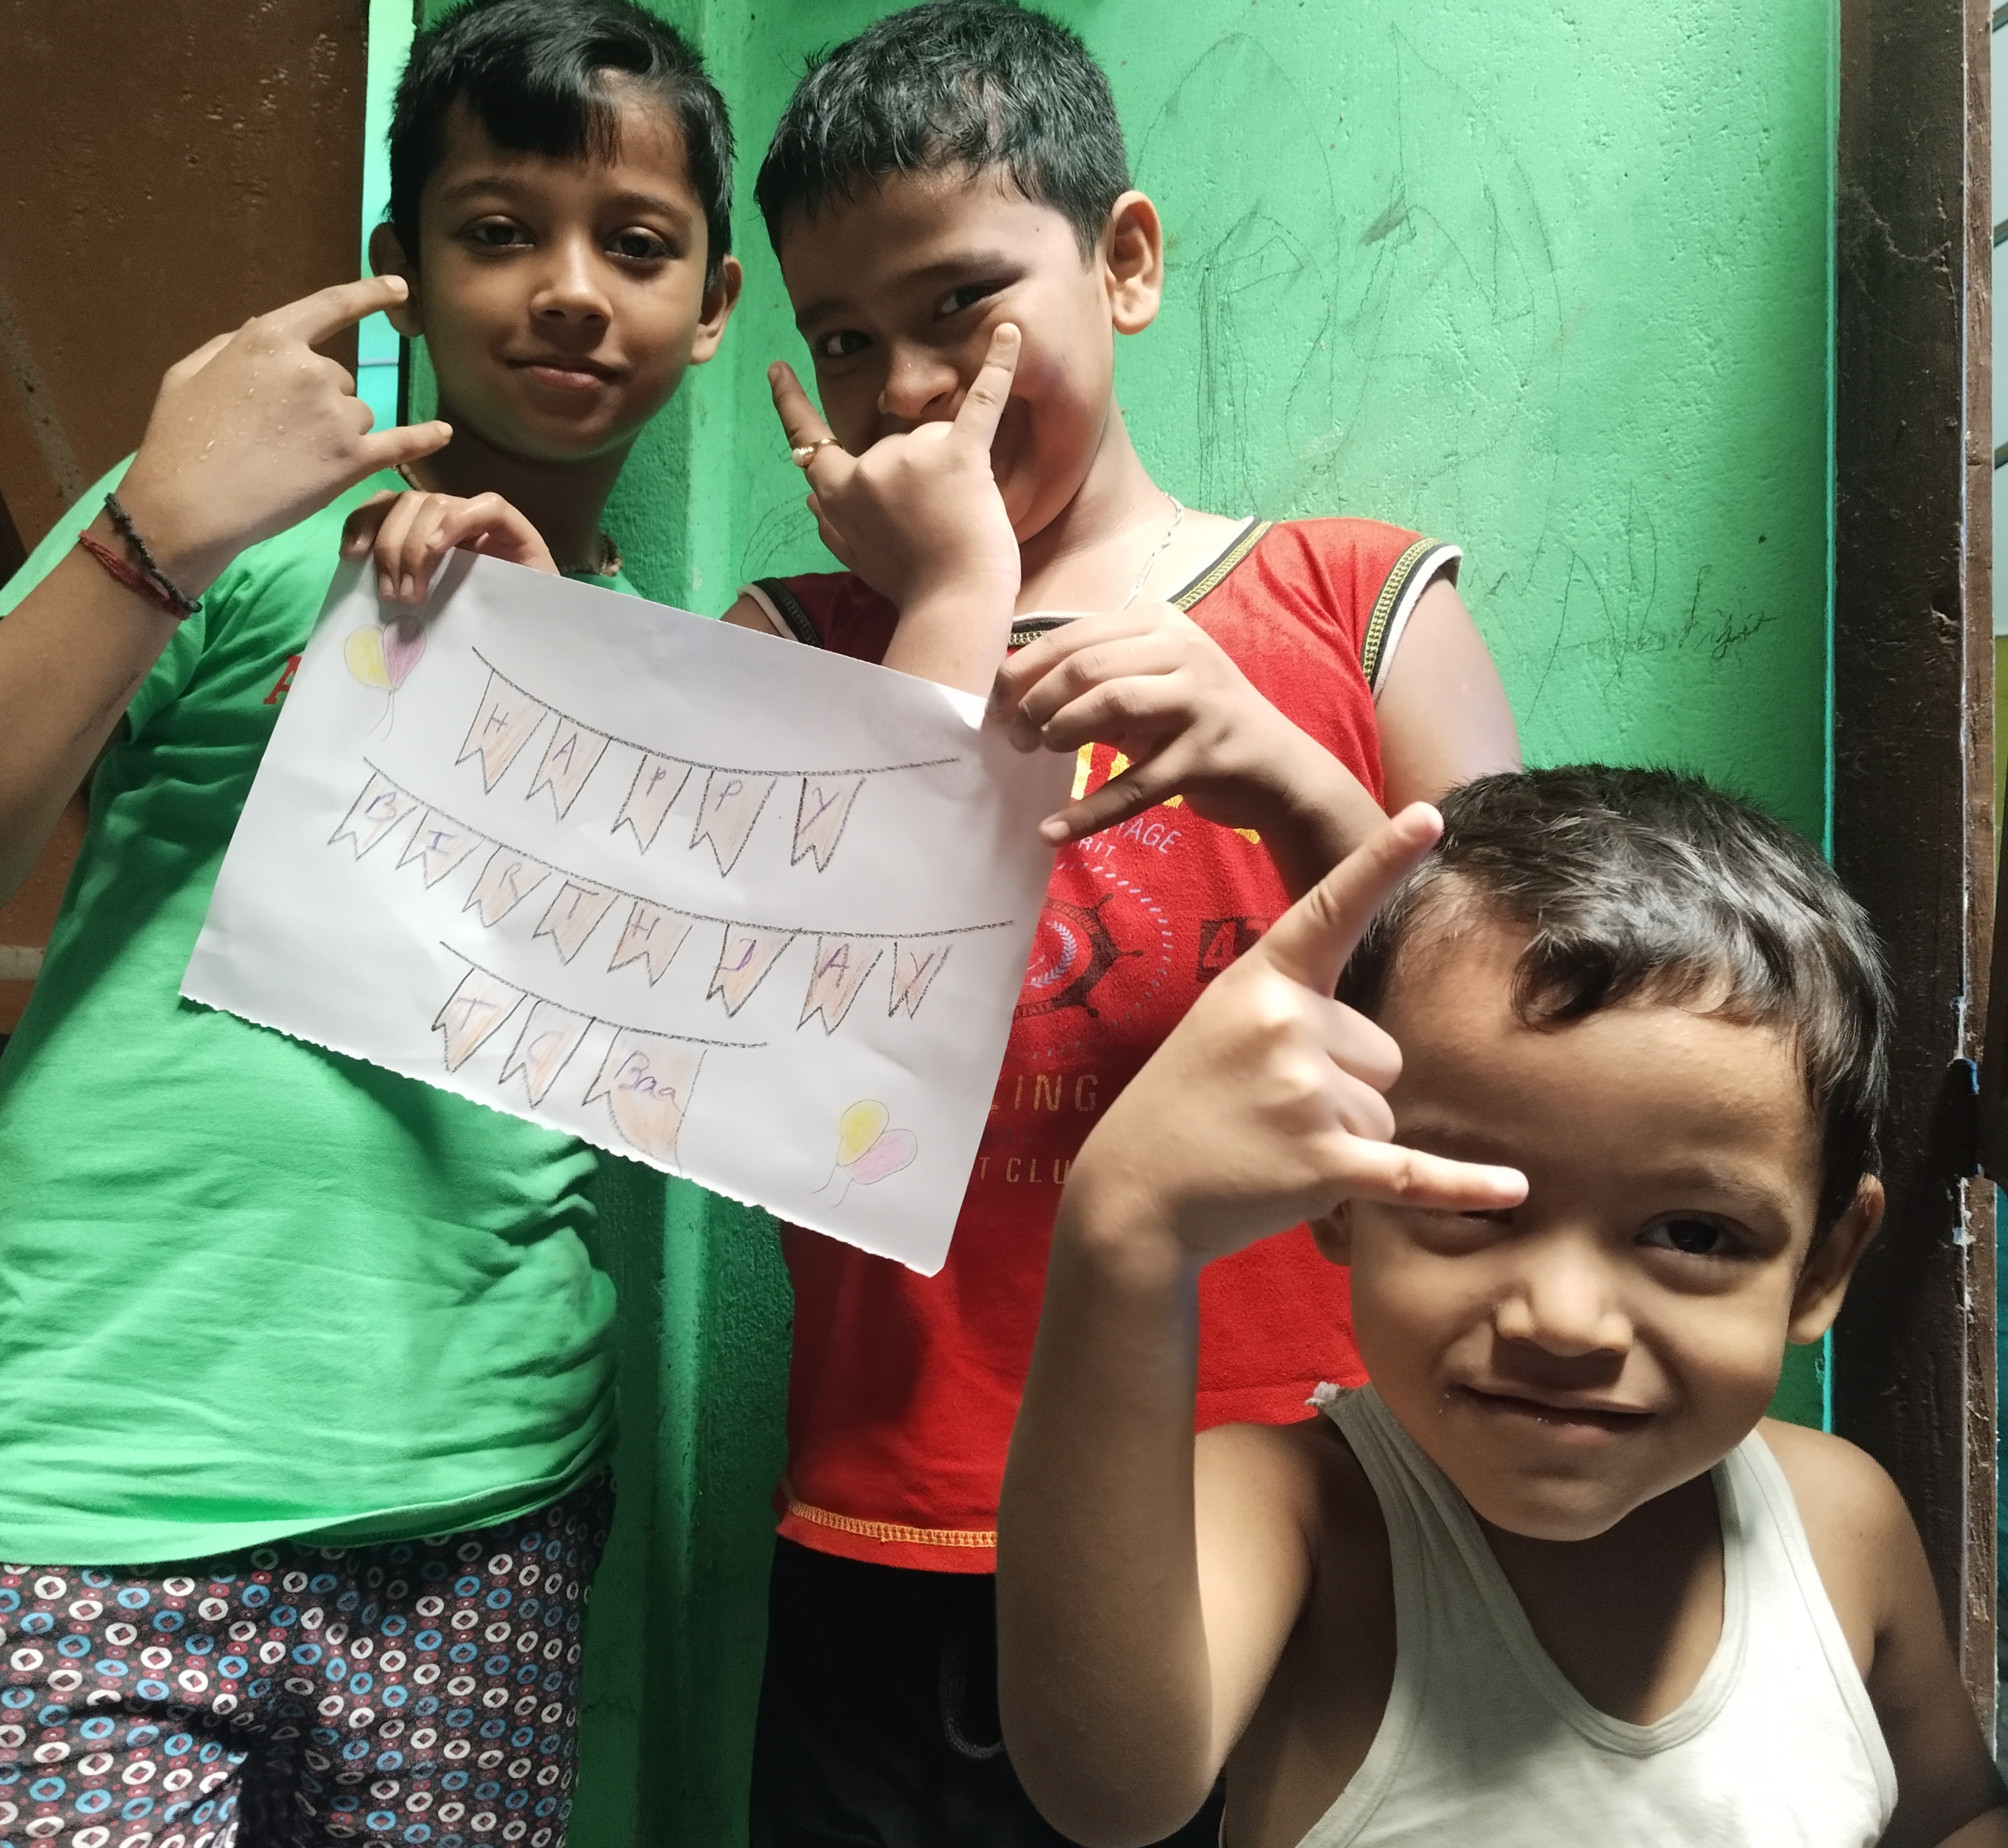 HAPPY
BIRTHDAY
Baa
TAGE
RIT
LING
T CLU